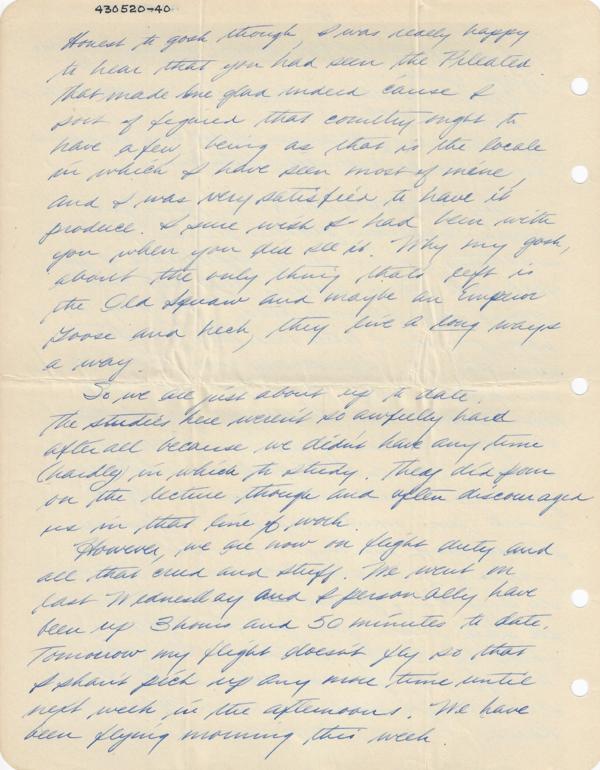 430520-40
Honest to gosh though, I was really happy
to hear that you had seen the Pileated
that made me glad indeed cause I
sort of figured that country ought to
have a few, being as that is the locale
in which I have seen most of mine,
and I was very satisfied to have it
produce. I sure wish I had been with
you when you did see it. Why my gosh,
about the only thing thats left is
the Old Squaw and maybe an Emperor
Goose and heck, they live a long ways
a way.
So we are just about up to date.
The studies here weren't so awfully hard
after all because we didn't have any time
(hardly) in which to study. They did pour
on the lecture though and often discouraged
us in that line of work.
However, we are now on flight duty and
all that crud and stuff. We went on
last Wednesday and I personally have
been up 3 hours and 50 minutes to date.
Tomorrow my flight doesn't fly so that
I shan't pick up any more time until
next week in the afternoons. We have
been flying morning this week.